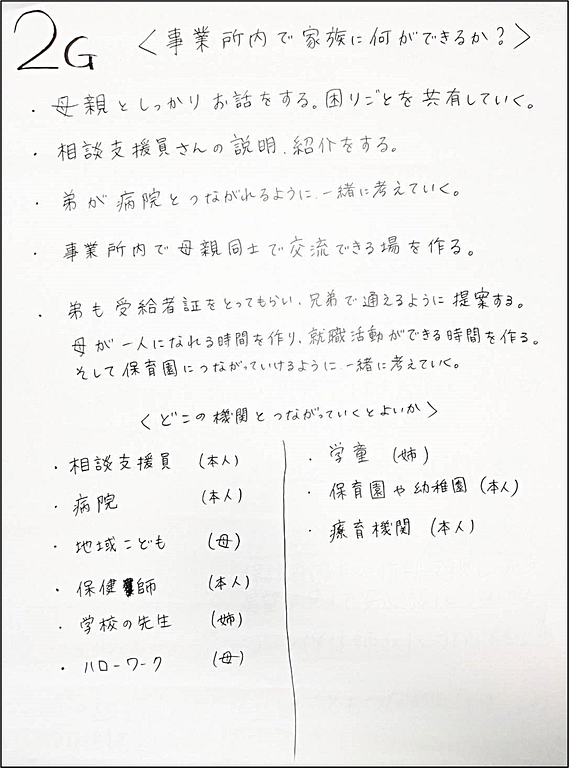 2G
〈事業所内で家族に何ができるか?〉
・母親としっかりお話をする。困りごとを共有していく。
・相談支援員さんの説明、紹介をする。
・弟が病院とつながれるように、一緒に考えていく。
・事業所内で母親同士で交流できる場を作る。
・弟も受給者証をとってもらい、兄弟で通えるように提案する。
母が一人になれる時間を作り、就職活動ができる時間を作る。
そして保育園につながっていけるように、一緒に考えていく。
〈どこの機関とつながっていくとよいか〉
・相談支援員 (本人)
・病院 (本人)
・地域こども (母)
・保健師 (本人)
・学校の先生 (姉)
・ハローワーク (母)
・学童 (姉)
・保育園や幼稚園 (本人)
・療育機関 (本人)